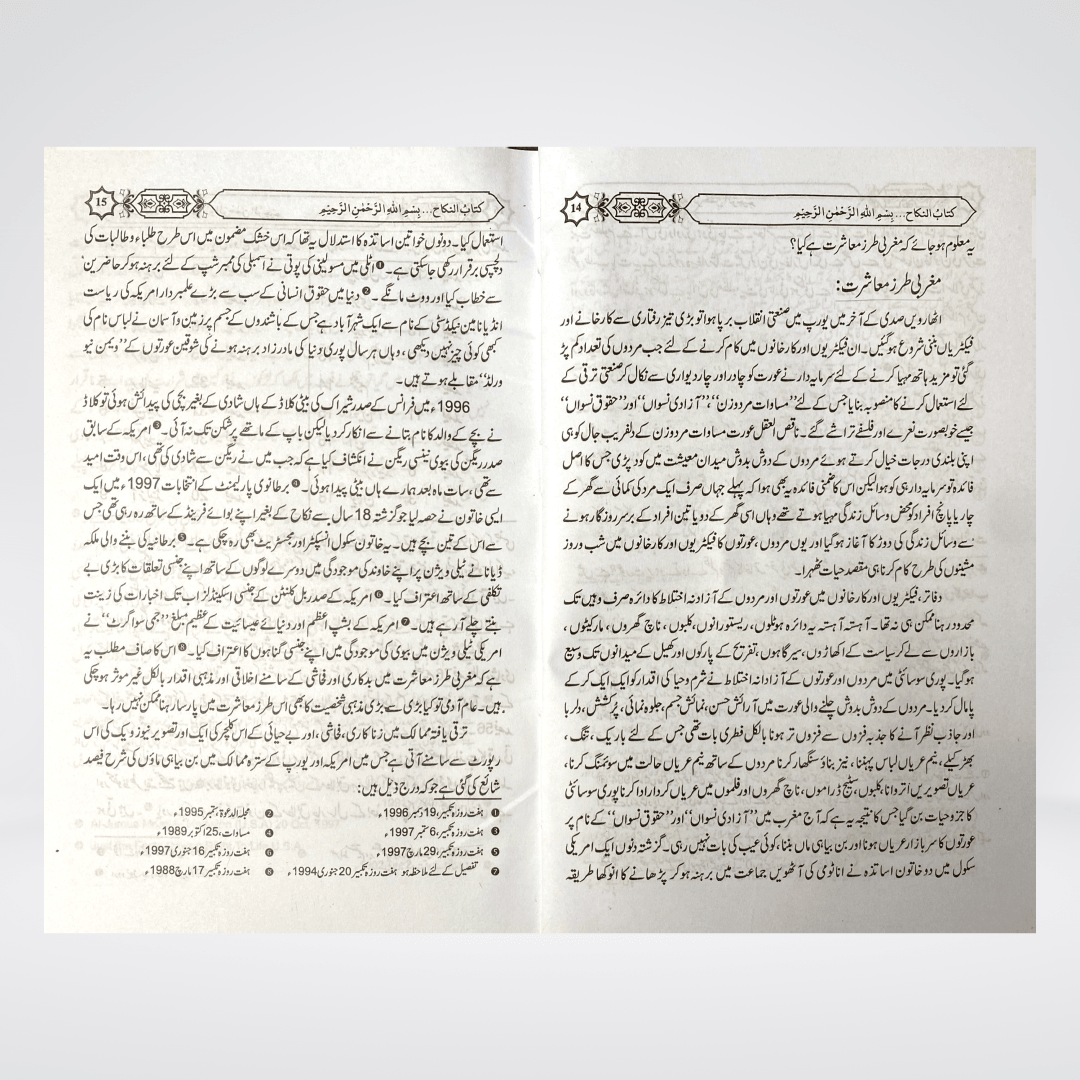 14
کتابُ النکاح... بِسْمِ اللّٰهِ الرَّحْمٰنِ الرَّحِیْمِ
یہ معلوم ہو جائے کہ مغربی طرز معاشرت ہے کیا؟
مغربی طرز معاشرت:
اٹھارویں صدی کے آخر میں یورپ میں صنعتی انقلاب برپا ہوا تو بڑی تیز رفتاری سے کارخانے اور
فیکٹریاں بننی شروع ہو گئیں۔ ان فیکٹریوں اور کارخانوں میں کام کرنے کے لئے جب مردوں کی تعداد کم پڑ
گئی تو مزید ہاتھ مہیا کرنے کے لئے سرمایہ دار نے عورت کو چادر اور چار دیواری سے نکال کر صنعتی ترقی کے
لئے استعمال کرنے کا منصوبہ بنایا جس کے لئے ”مساوات مرد و زن“، ”آزادی نسواں“ اور ”حقوق نسواں“
جیسے خوبصورت نعرے اور فلسفے تراشے گئے۔ ناقص العقل عورت مساوات مرد و زن کے دلفریب جال کو ہی
اپنی بلندی درجات خیال کرتے ہوئے مردوں کے دوش بدوش میدان معیشت میں کود پڑی جس کا اصل
فائدہ تو سرمایہ دار ہی کو ہوا لیکن اس کا ضمنی فائدہ یہ بھی ہوا کہ پہلے جہاں صرف ایک مرد کی کمائی سے گھر کے
چار یا پانچ افراد کو محض وسائل زندگی مہیا ہوتے تھے وہاں اسی گھر کے دو یا تین افراد کے برسر روزگار ہونے
سے وسائل زندگی کی دوڑ کا آغاز ہو گیا اور یوں مردوں، عورتوں کا فیکٹریوں اور کارخانوں میں شب و روز
مشینوں کی طرح کام کرنا ہی مقصد حیات ٹھہرا۔
دفاتر، فیکٹریوں اور کارخانوں میں عورتوں اور مردوں کے آزادانہ اختلاط کا دائرہ صرف وہیں تک
محدود رہنا ممکن ہی نہ تھا۔ آہستہ آہستہ یہ دائرہ ہوٹلوں، ریستورانوں، کلبوں، ناچ گھروں، مارکیٹوں،
بازاروں سے لے کر سیاست کے اکھاڑوں، سیر گاہوں، تفریح کے پارکوں اور کھیل کے میدانوں تک وسیع
ہو گیا۔ پوری سوسائٹی میں مردوں اور عورتوں کے آزادانہ اختلاط نے شرم و حیا کی اقدار کو ایک ایک کر کے
پامال کر دیا۔ مردوں کے دوش بدوش چلنے والی عورت میں آرائش حسن، نمائش جسم، جلوہ نمائی، پرکشش، دلربا
اور جاذب نظر آنے کا جذبہ فزوں سے فزوں تر ہونا بالکل فطری بات تھی جس کے لئے باریک، تنگ،
بھڑکیلے، نیم عریاں لباس پہننا، نیز بناؤ سنگھار کرنا مردوں کے ساتھ نیم عریاں حالت میں سوئمنگ کرنا،
عریاں تصویریں اتروانا، کلبوں، سٹیج ڈراموں، ناچ گھروں اور فلموں میں عریاں کردار ادا کرنا پوری سوسائٹی
کا جزو حیات بن گیا جس کا نتیجہ یہ ہے کہ آج مغرب میں ”آزادی نسواں“ اور ”حقوق نسواں“ کے نام پر
عورتوں کا سر بازار عریاں ہونا اور بن بیاہی ماں بننا، کوئی عیب کی بات نہیں رہی۔ گزشتہ دنوں ایک امریکی
سکول میں دو خاتون اساتذہ نے اناٹومی کی آٹھویں جماعت میں برہنہ ہو کر پڑھانے کا انوکھا طریقہ
15
کتابُ النکاح... بِسْمِ اللّٰهِ الرَّحْمٰنِ الرَّحِیْمِ
استعمال کیا۔ دونوں خواتین اساتذہ کا استدلال یہ تھا کہ اس خشک مضمون میں اس طرح طلباء و طالبات کی
دلچسپی برقرار رکھی جا سکتی ہے۔❶ اٹلی میں مسولینی کی پوتی نے اسمبلی کی ممبر شپ کے لئے برہنہ ہو کر حاضرین
سے خطاب کیا اور ووٹ مانگے۔❷ دنیا میں حقوق انسانی کے سب سے بڑے علمبردار امریکہ کی ریاست
انڈیانا مین نیکڈسٹی کے نام سے ایک شہر آباد ہے جس کے باشندوں کے جسم پر زمین و آسمان نے لباس نام کی
کبھی کوئی چیز نہیں دیکھی، وہاں ہر سال پوری دنیا کی مادر زاد برہنہ ہونے کی شوقین عورتوں کے ”ویمن نیو
ورلڈ“ مقابلے ہوتے ہیں۔
1996ء میں فرانس کے صدر شیراک کی بیٹی کلاڈ کے ہاں شادی کے بغیر بچی کی پیدائش ہوئی تو کلاڈ
نے بچے کے والد کا نام بتانے سے انکار کر دیا لیکن باپ کے ماتھے پر شکن تک نہ آئی۔❸ امریکہ کے سابق
صدر ریگن کی بیوی نینسی ریگن نے انکشاف کیا ہے کہ جب میں نے ریگن سے شادی کی تھی، اس وقت امید
سے تھی، سات ماہ بعد ہمارے ہاں بیٹی پیدا ہوئی۔❹ برطانوی پارلیمنٹ کے انتخابات 1997ء میں ایک
ایسی خاتون نے حصہ لیا جو گزشتہ 18 سال سے نکاح کے بغیر اپنے بوائے فرینڈ کے ساتھ رہ رہی تھی جس
سے اس کے تین بچے ہیں۔ یہ خاتون سکول انسپکٹر اور مجسٹریٹ بھی رہ چکی ہے۔❺ برطانیہ کی بننے والی ملکہ
ڈیانا نے ٹیلی ویژن پر اپنے خاوند کی موجودگی میں دوسرے لوگوں کے ساتھ اپنے جنسی تعلقات کا بڑی بے
تکلفی کے ساتھ اعتراف کیا۔❻ امریکہ کے صدر بل کلنٹن کے جنسی اسکینڈلز اب تک اخبارات کی زینت
بنتے چلے آ رہے ہیں۔❼ امریکہ کے بشپ اعظم اور دنیائے عیسائیت کے عظیم مبلغ ”جمی سواگرٹ“ نے
امریکی ٹیلی ویژن میں بیوی کی موجودگی میں اپنے جنسی گناہوں کا اعتراف کیا۔❽ اس کا صاف مطلب یہ
ہے کہ مغربی طرز معاشرت میں بدکاری اور فحاشی کے سامنے اخلاقی اور مذہبی اقدار بالکل غیر موثر ہو چکی
ہیں۔ عام آدمی تو کیا بڑی سے بڑی مذہبی شخصیت کا بھی اس طرز معاشرت میں پارسا رہنا ممکن نہیں رہا۔
ترقی یافتہ ممالک میں زنا کاری، فحاشی، اور بے حیائی کے اس کلچر کی ایک اور تصویر نیوز ویک کی اس
رپورٹ سے سامنے آتی ہے جس میں امریکہ اور یورپ کے سترہ ممالک میں بن بیاہی ماؤں کی شرح فیصد
شائع کی گئی ہے جو کہ درج ذیل ہیں:
❶ ہفت روزہ تکبیر، 19 دسمبر 1996ء ❷ مجلہ الدعوۃ، ستمبر 1995ء
❸ ہفت روزہ تکبیر، 6 ستمبر 1997ء ❹ مساوات، 25 اکتوبر 1989ء
❺ ہفت روزہ تکبیر، 29 مارچ 1997ء ❻ ہفت روزہ تکبیر 16 جنوری 1997ء
❼ تفصیل کے لئے ملاحظہ ہو ہفت روزہ تکبیر 20 جنوری 1994ء ❽ ہفت روزہ تکبیر 17 مارچ 1988ء